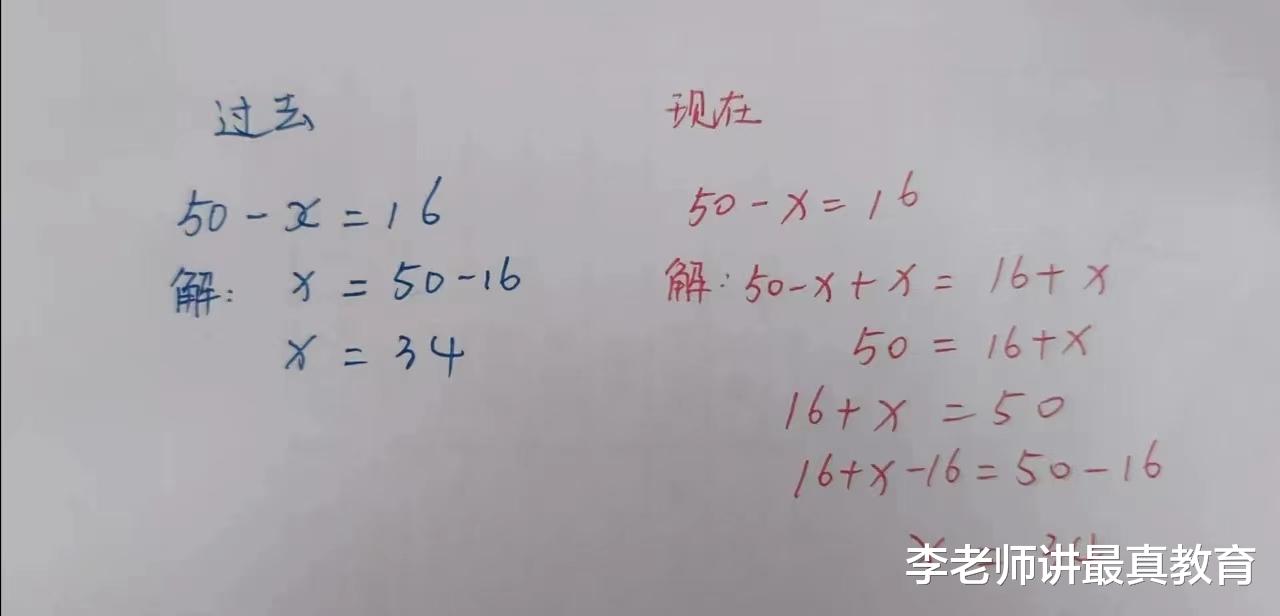 过去
50-x=16
解: x=50-16
x=34
现在
50-x=16
解:50-x+x=16+x
50=16+x
16+x=50
16+x-16=50-16
李老师讲最真教育